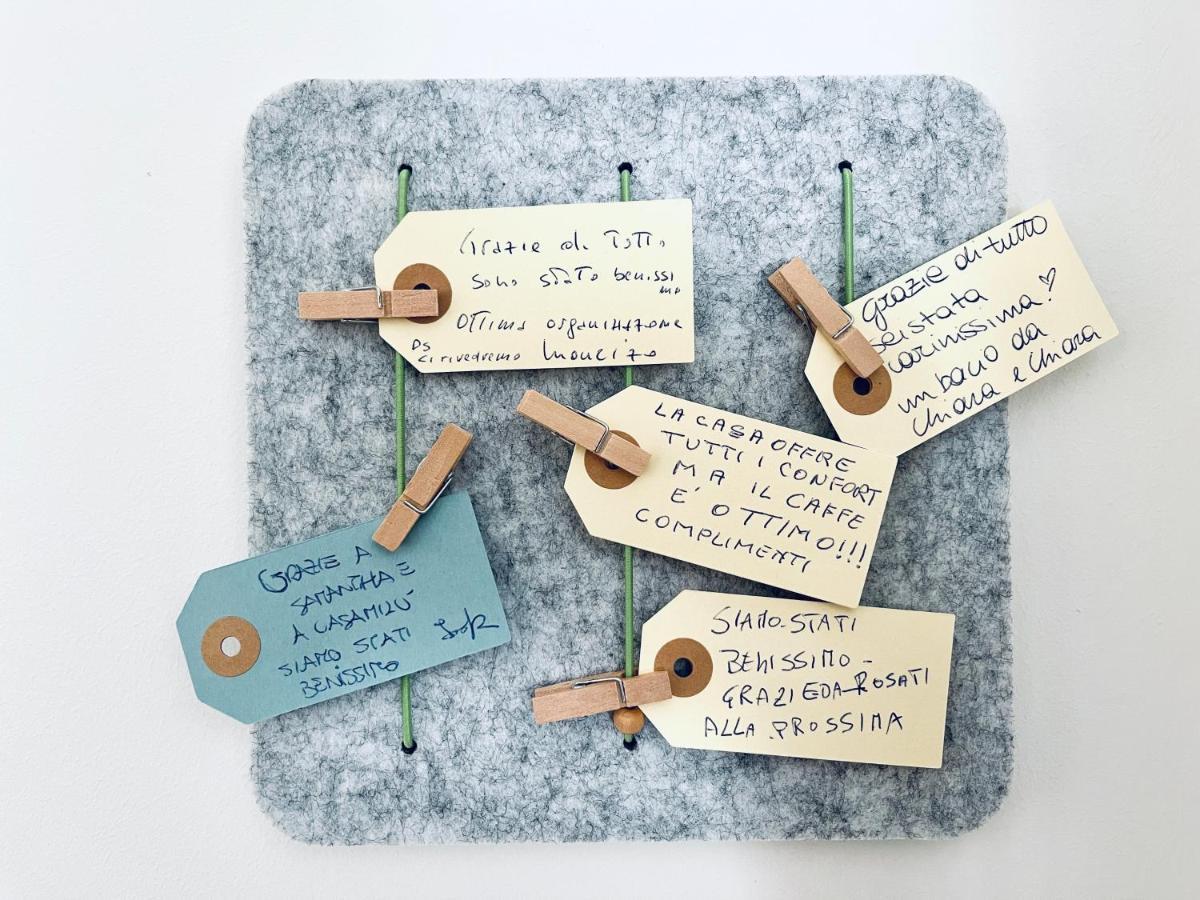 Grazie di tutto
sono stato benissi
mo
Ottima organizzazione
PS
Ci rivedremo Maurizio
Grazie di tutto
sei stata
carinissima!♡
un bacio da
Chiara e Chiara
LA CASA OFFRE
TUTTI I CONFORT
MA IL CAFFE
E' OTTIMO!!!
COMPLIMENTI
GRAZIE A
SAMANTHA E
A CASAMILÙ
SIAMO STATI
BENISSIMO
SIAMO STATI
BENISSIMO -
GRAZIE DA ROSATI
ALLA PROSSIMA